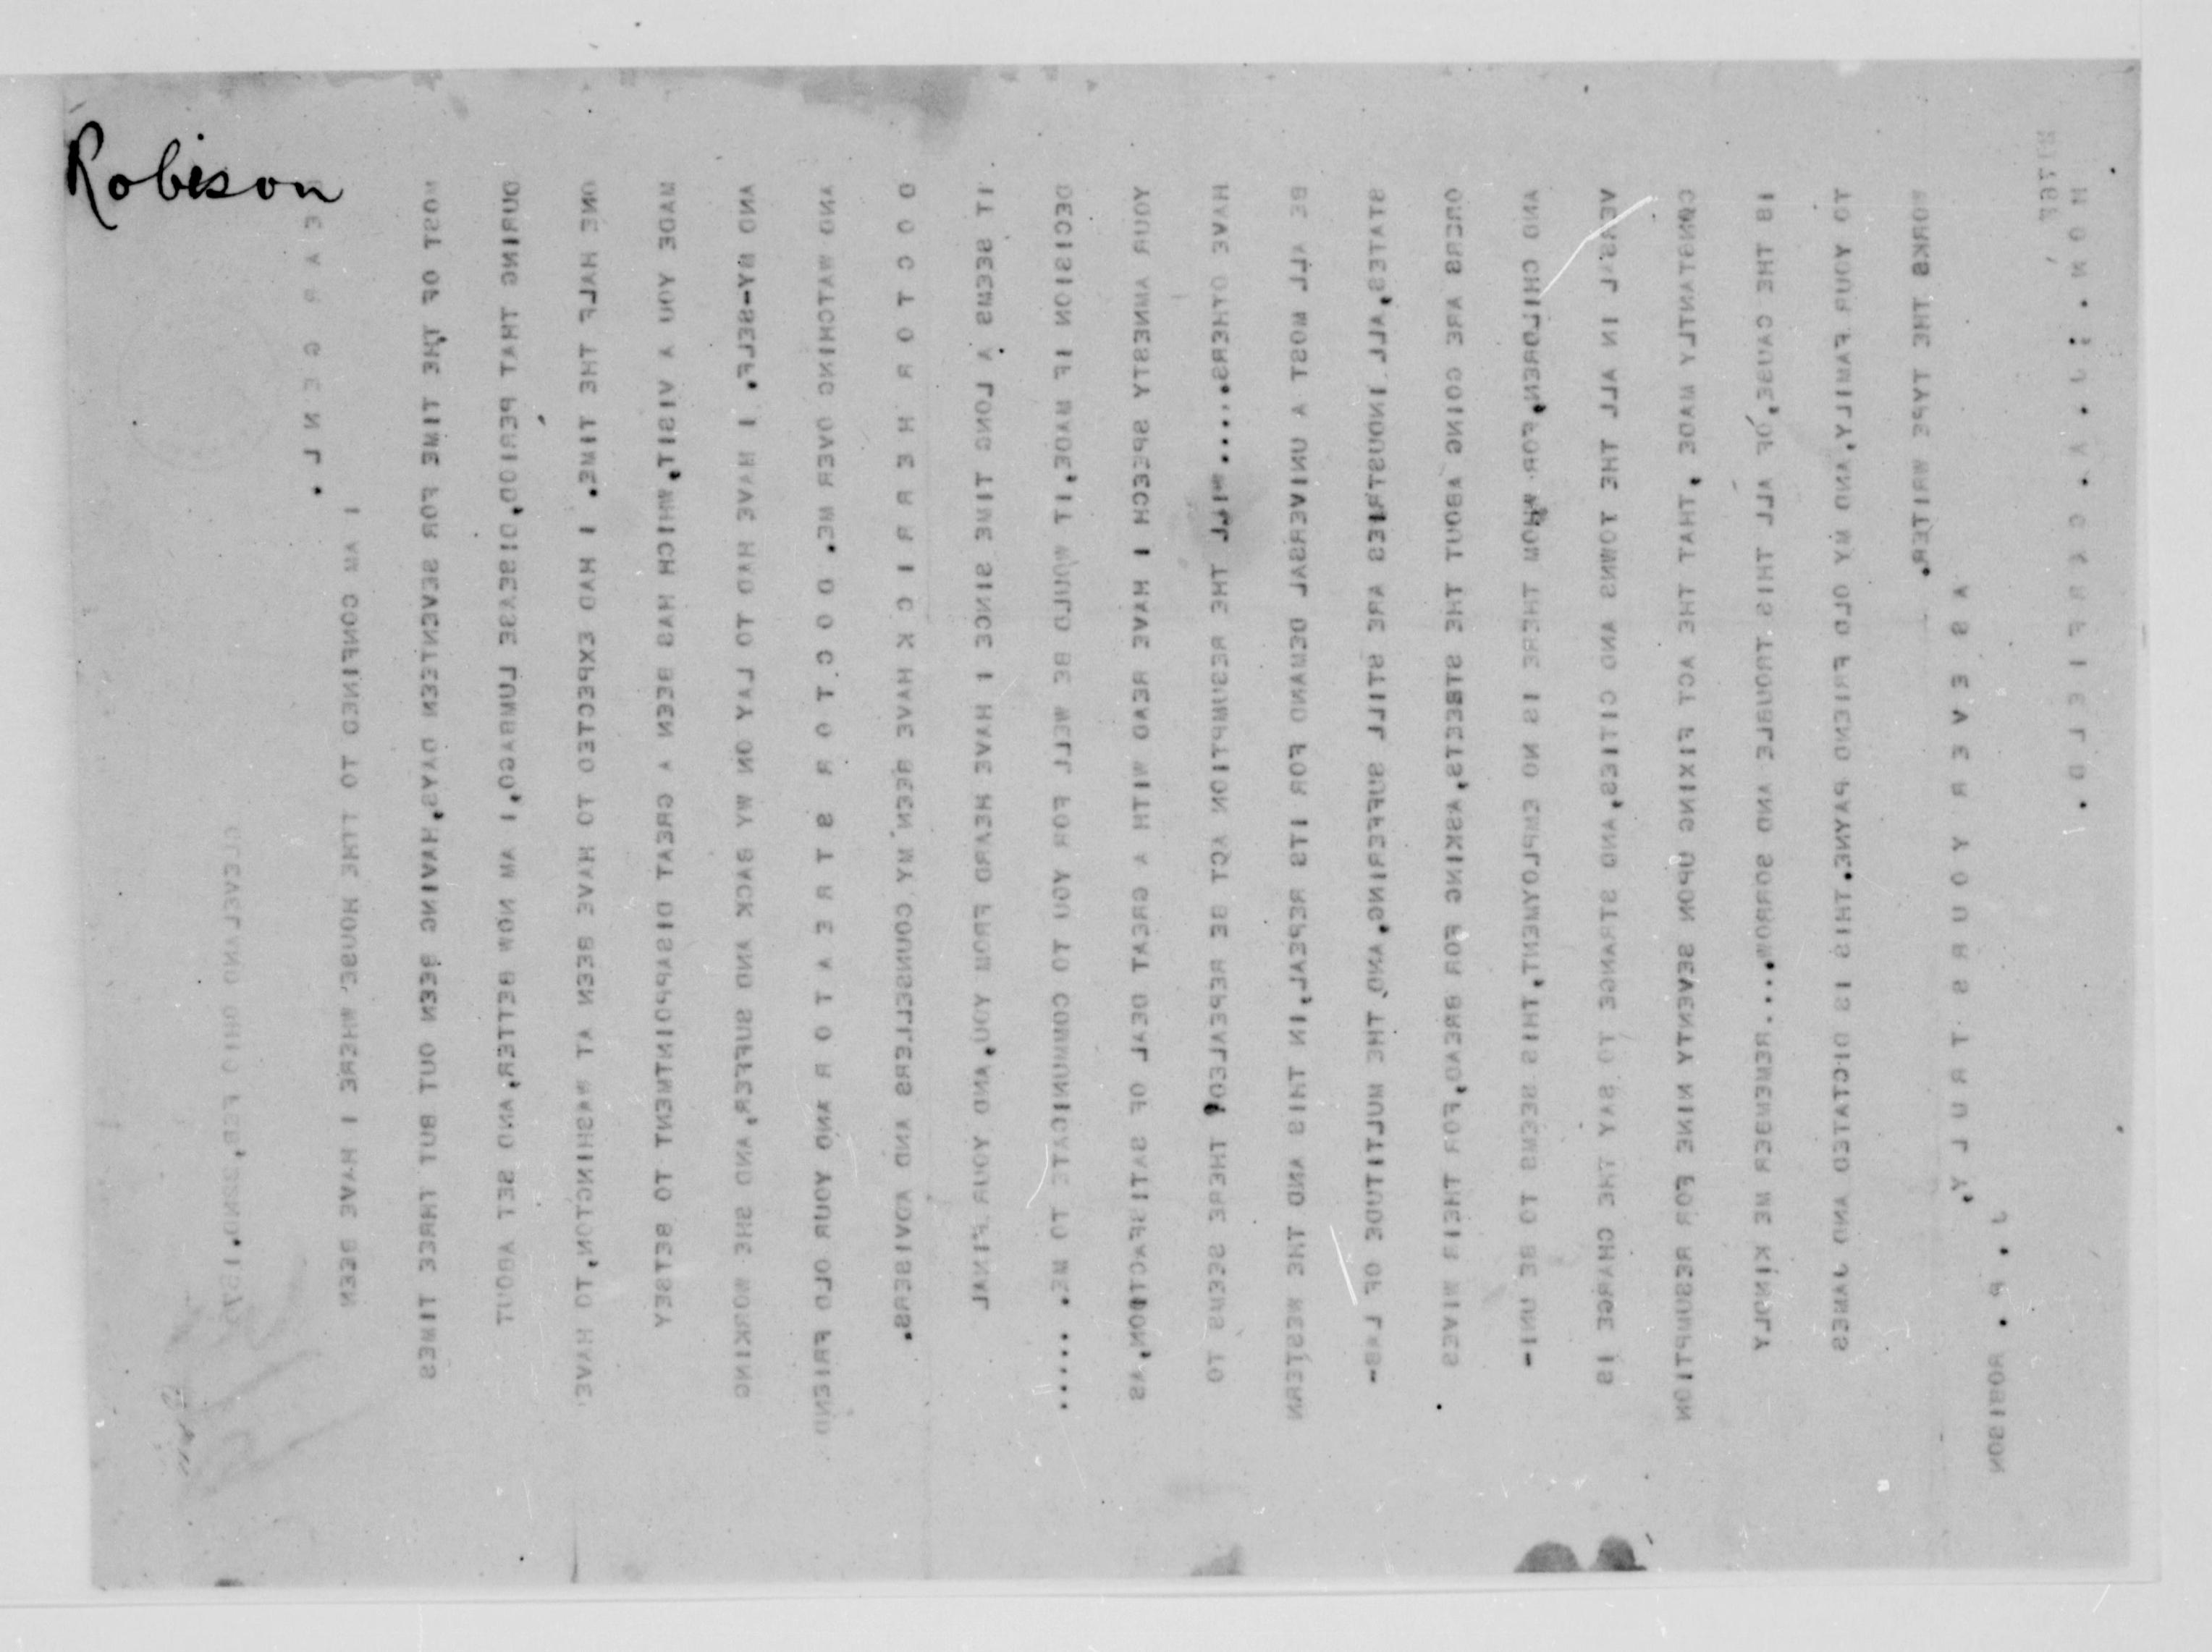 Robison
CLEVELAND OHIO FEB'22ND'187
DEAR GENL.
I AM CONFINED TO THE HOUSE, WHERE I HAVE BEEN
MOST OF THE TIME FOR SEVENTEEN DAYS'HAVING BEEN OUT BUT THREE TIMES
DURING THAT PERIOD'DISEASE LUMBAGO'I AM NOW BETTER'AND SET ABOUT
ONE HALF THE TIME. I HAD EXPECTED TO HAVE BEEN AT WASHINGTON'TO HAVE
MADE YOU A VISIT'WHICH HAS BEEN A GREAT DISAPPOINTMENT TO BETSEY
AND MY-SELF. I HAVE HAD TO LAY ON MY BACK AND SUFFER'AND SHE WORKING
AND WATCHING OVER ME. D O C T O R S T R E A T O R AND YOUR OLD FRIEND
D O C T O R H E R R I C K HAVE BEEN MY COUNSELLERS AND ADVISERS.
IT SEEMS A LONG TIME SINCE I HAVE HEARD FROM YOU'AND YOUR FINAL
DECISION IF MADE'IT WOULD BE WELL FOR YOU TO COMMUNICATE TO ME. .....
YOUR AMNESTY SPEECH I HAVE READ WITH A GREAT DEAL OF SATISFACTION'AS
HAVE OTHERS.....WILL THE RESUMPTION ACT BE REPEALED? THERE SEEMS TO
BE ALL MOST A UNIVERSAL DEMAND FOR ITS REPEAL'IN THIS AND THE WESTERN
STATES'ALL INDUSTRIES ARE STILL SUFFERING'AND THE MULTITUDE OF LAB-
OURERS ARE GOING ABOUT THE STREETS'ASKING FOR BREAD'FOR THEIR WIVES
AND CHILDREN'FOR WHOM THERE IS NO EMPLOYMENT'THIS SEEMS TO BE UNI-
VERSAL IN ALL THE TOWNS AND CITIES'AND STRANGE TO SAY THE CHARGE IS
CONSTANTLY MADE 'THAT THE ACT FIXING UPON SEVENTY NINE FOR RESUMPTION
IS THE CAUSE'OF ALL THIS TROUBLE AND SORROW....REMEMBER ME KINDLY
TO YOUR FAMILY'AND MY OLD FRIEND PAYNE.THIS IS DICTATED AND JAMES
WORKS THE TYPE WRITER.
A S E V E R Y O U R S T R U L Y'
J . P . ROBISON
H O N . J . A . G A R F I E L D .